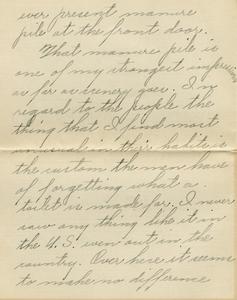 ever present manure
pile at the front door.
That manure pile is
one of my strongest impressions
as far as scenery goes. In
regard to the people the
thing that I find most
unusual in their habits is
the custom the men have
of forgetting what a
toilet is made for. I never
saw any thing like it in
the U.S. even out in the
country. Over here it seems
to make no difference